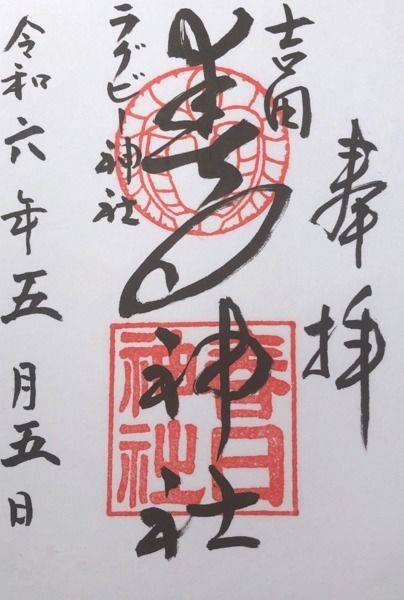 奉拝
吉田
春日神社
春日
神社
ラグビー神社
令和六年五月五日